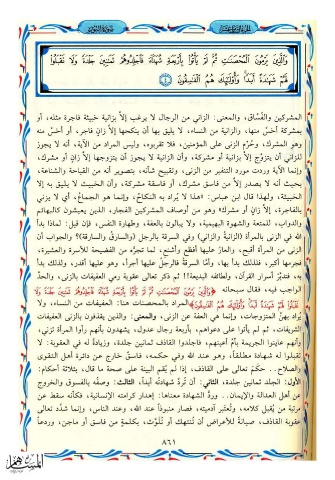 وَالَّذِينَ يَرْمُونَ الْمُحْصَنَتِ ثُمَّ لَمْ يَأْتُوا بِأَرْبَعَةِ شُهَدَاءَ فَاجْلِدُوهُمْ ثَمَنِينَ جَلْدَةً وَلَا تَقْبَلُوا
لَهُمْ شَهَدَةً أَبَدًا وَأُوْلَئِكَ هُمُ الْفَسِقُونَ ٤
المشركين والفُسَّاق، والمعنى: الزاني من الرجال لا يرغب إلاَّ بزانية خبيثة فاجرة مثله، أو
بمشركة أخسَّ منها، والزانية من النساء، لا يليق بها أن ينكحها إلاَّ زانٍ فاجر، أو أخسّ منه
وهو المشرك، وحُرِّم الزنى على المؤمنين، فلا تقربوه، وليس المراد من الآية، أنه لا يجوز
للزاني أن يتزوَّج إلاَّ بزانية أو مشركة، وأن الزانية لا يجوز أن يتزوجها إلاَّ زانٍ أو مشرك،
وإنما الآية وردت مورد التنفير من الزنى، وتقبيح شأنه، بتصوير أنه من القباحة والشناعة،
بحيث أنه لا يصدر إلاَّ من فاسق مشرك، أو فاسقة مشركة، وأن الخبيث لا يليق به إلا
الخبيثة، ولهذا قال ابن عباس: «هذا لا يراد به النكاح، وإنما هو الجماع»، أي لا يزني
بالفاجرة، إلاَّ زانٍ أو مشرك» وهو من أوصاف المشركين الفجار، الذين يعيشون كالبهائم
والدواب، للمتعة والشهوة البهيمية، ولا يبالون بالعفة، وطهارة النفس، فإن قيل: لماذا بدأ
الله في الزنى بالمرأة (الزانيةُ والزاني) وفي السرقة بالرجل (والسارقُ والسارقة)؟ والجواب أن
الزنى من المرأة أقبح، والعارُ عليها أفظع وأشنع، لما تجرُّه من الفضيحة للأسرة والعشيرة،
فجرمها أكبر، فلذلك بدأ بها، وأمَّا السرقة فالرجلُ عليها أجرأ، وهو عليها أقدر، ولذلك بدأ
به، فتدبَّرْ أسرار القرآن، ولطائفه البديعة!! ثم ذكر تعالى عقوبة رمي العفيفات بالزنى، والحدَّ
الواجب فيه، فقال سبحانه ﴿وَالَّذِينَ يَرْمُونَ الْمُحْصَنَتِ ثُمَّ لَمْ يَأْتُوا بِأَرْبَعَةِ شُهَدَاءَ فَاجْلِدُوهُمْ ثَمَنِينَ جَلْدَةً وَلَا
تَقْبَلُوا لَهُمْ شَهَدَةً أَبَدًا وَأُوْلَئِكَ هُمُ الْفَسِقُونَ﴾ المراد بالمحصنات هنا: العفيفات من النساء، ولا
يُراد بهنَّ المتزوجات، وإنما هي العفة عن الزنى، والمعنى: والذين يقذفون بالزنى العفيفات
الشريفات، ثم لم يأتوا على دعواهم، بأربعة رجال عدول، يشهدون بأنهم رأوا المرأة تزني
وأنهم عاينوا الجريمة بأمّ أعينهم، فاجلدوا القاذف ثمانين جلدة، وزيادةً له في العقوبة: لا
تقبلوا له شهادة مطلقاً، وهو عند الله وفي حكمه، فاسقٌ خارج عن دائرة أهل التقوى
والصلاح.. حكمَ تعالى على القاذف، إذا لم يُقم البينة على صحة ما قال، بثلاثة أحكام:
الأول: الجلد ثمانين جلدة، الثاني: أن تُردَّ شهادتُه أبداً، الثالث: وصفُه بالفسوق والخروج
عن أهل العدالة والإيمان.. وردُّ الشهادة معناها: إهدار كرامته الإنسانية، فكأنه سقط عن
مرتبة من يُقبل كلامه، وتُعتبر آدميته، فصار منبوذاً عند الله، وعند الناس، وإنما شدَّد تعالى
عقوبة القاذف، صيانةً للأعراض أن تُنتهك أو تُلوَّث، بكلمةٍ من فاسق أو ماجن، وردعاً
٨٦١